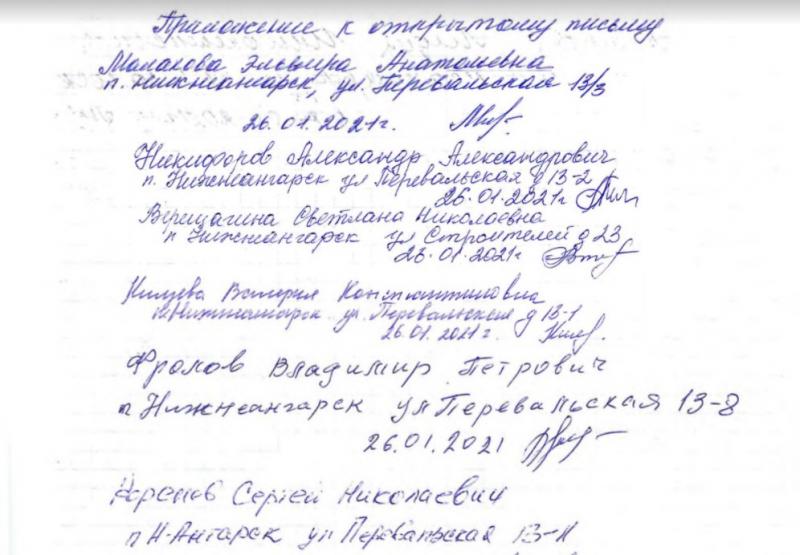 Приложение к открытому письму
Малахова Эльвира Анатольевна
п. Нижнеангарск, ул. Перевальская 13/3
26.01.2021г.
Никифоров Александр Александрович
п. Нижнеангарск ул Перевальская д 13-2
26.01.2021г
Верещагина Светлана Николаевна
п Нижнеангарск ул Строителей д 23
26.01.2021г
Валерия Константиновна
п. Нижнеангарск ул. Перевальская д 13-1
26.01.2021г.
Фролов Владимир Петрович
п Нижнеангарск ул Перевальская 13-8
26.01.2021
Сергей Николаевич
п Н-Ангарск ул Перевальская